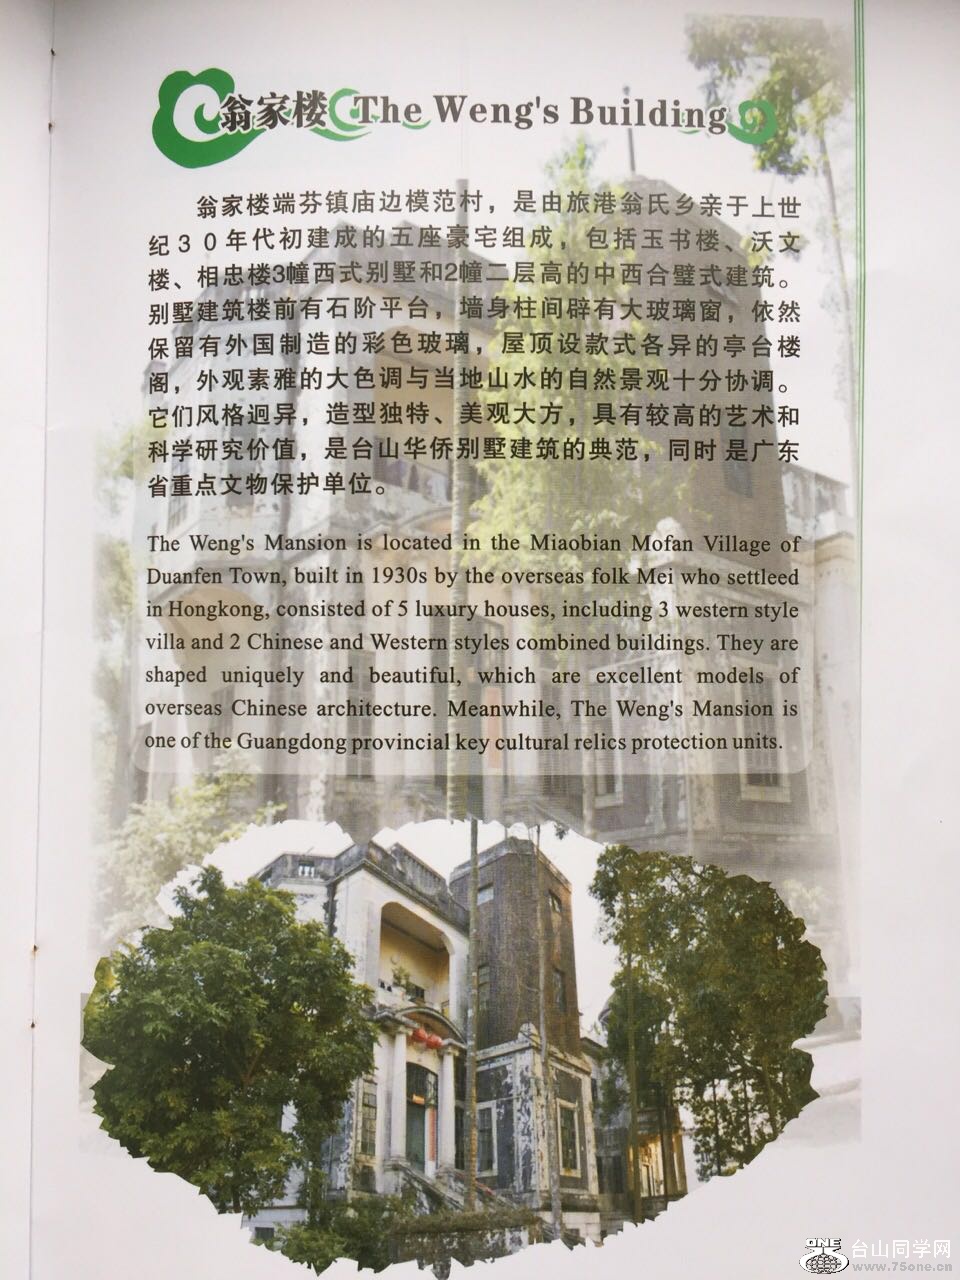 翁家楼 The Weng's Building
翁家楼端芬镇庙边模范村，是由旅港翁氏乡亲于上世
纪30年代初建成的五座豪宅组成，包括玉书楼、沃文
楼、相忠楼3幢西式别墅和2幢二层高的中西合璧式建筑。
别墅建筑楼前有石阶平台，墙身柱间辟有大玻璃窗，依然
保留有外国制造的彩色玻璃，屋顶设款式各异的亭台楼
阁，外观素雅的大色调与当地山水的自然景观十分协调。
它们风格迥异，造型独特、美观大方，具有较高的艺术和
科学研究价值，是台山华侨别墅建筑的典范，同时是广东
省重点文物保护单位。
The Weng's Mansion is located in the Miaobian Mofan Village of
Duanfen Town, built in 1930s by the overseas folk Mei who settleed
in Hongkong, consisted of 5 luxury houses, including 3 western style
villa and 2 Chinese and Western styles combined buildings. They are
shaped uniquely and beautiful, which are excellent models of
overseas Chinese architecture. Meanwhile, The Weng's Mansion is
one of the Guangdong provincial key cultural relics protection units.
ONE 台山同学网
www.75one.cn